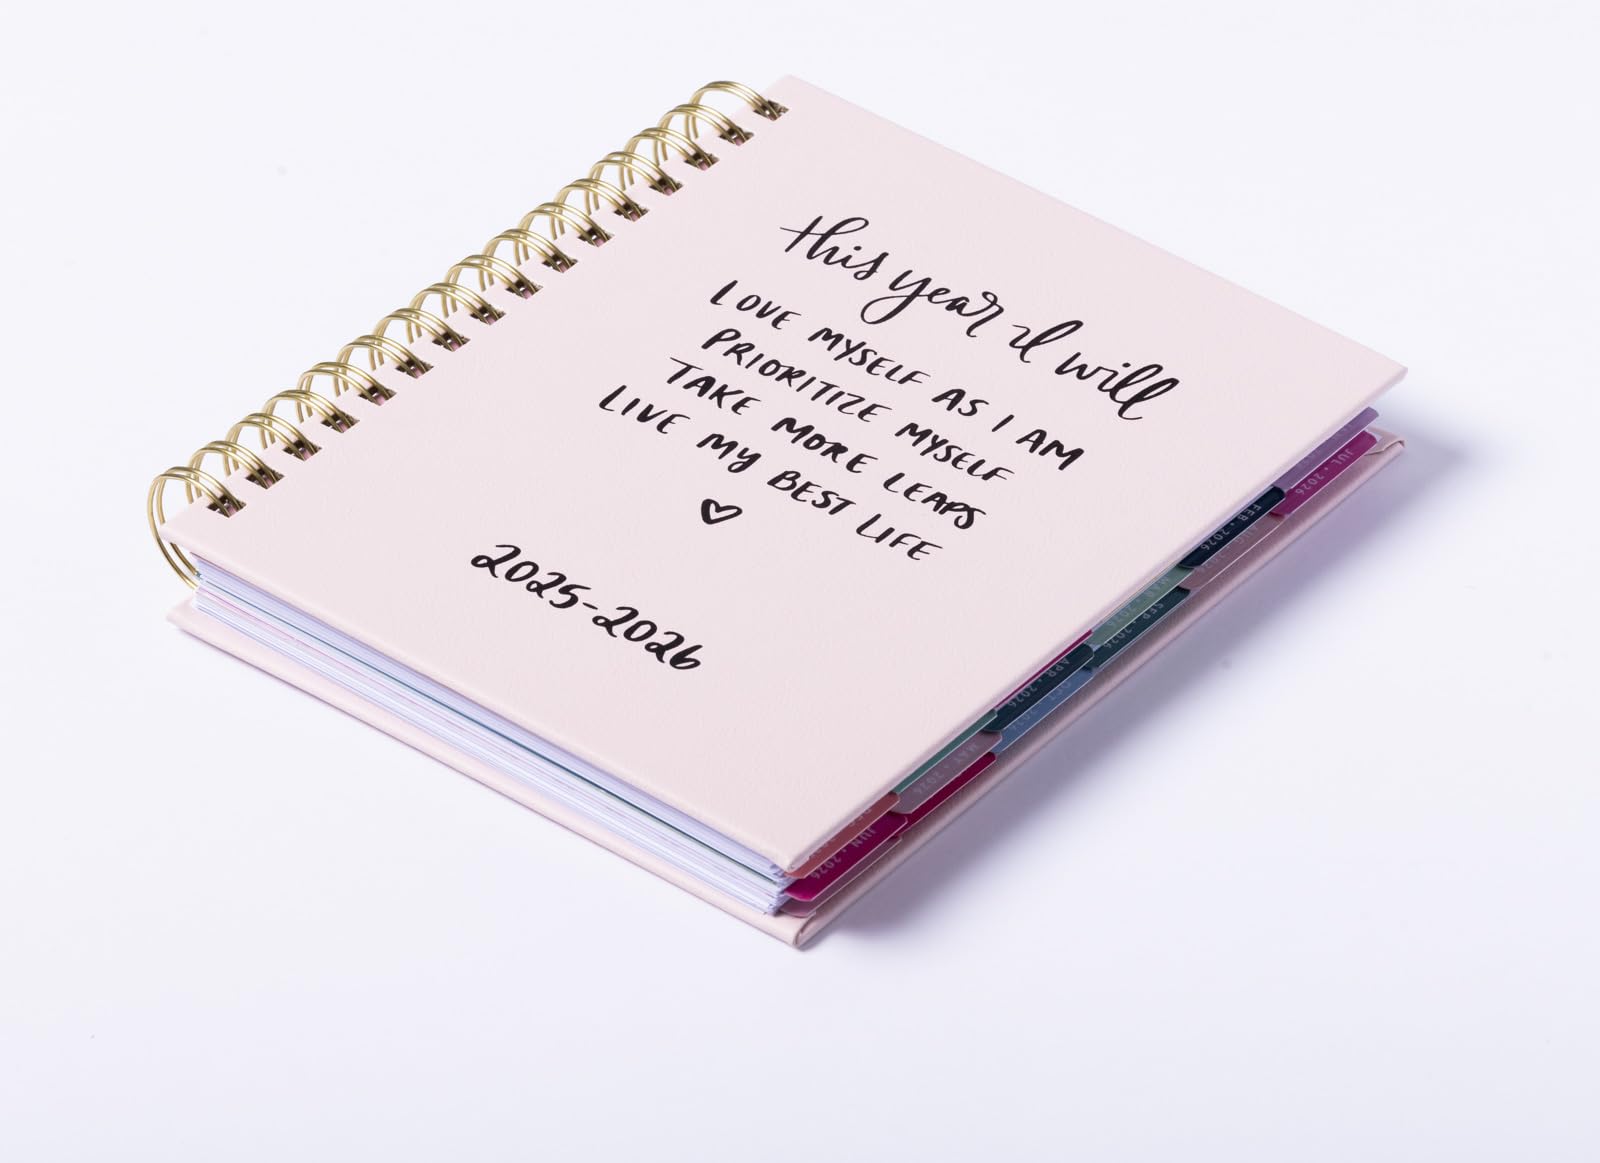 this year I will
LOVE MYSELF AS I AM
PRIORITIZE MYSELF
TAKE MORE LEAPS
LIVE MY BEST LIFE
2025-2026
JUL • 2026
FEB • 2026
AUG • 2026
MAR • 2026
SEP • 2026
APR • 2026
OCT • 2026
MAY • 2026
JUN • 2026